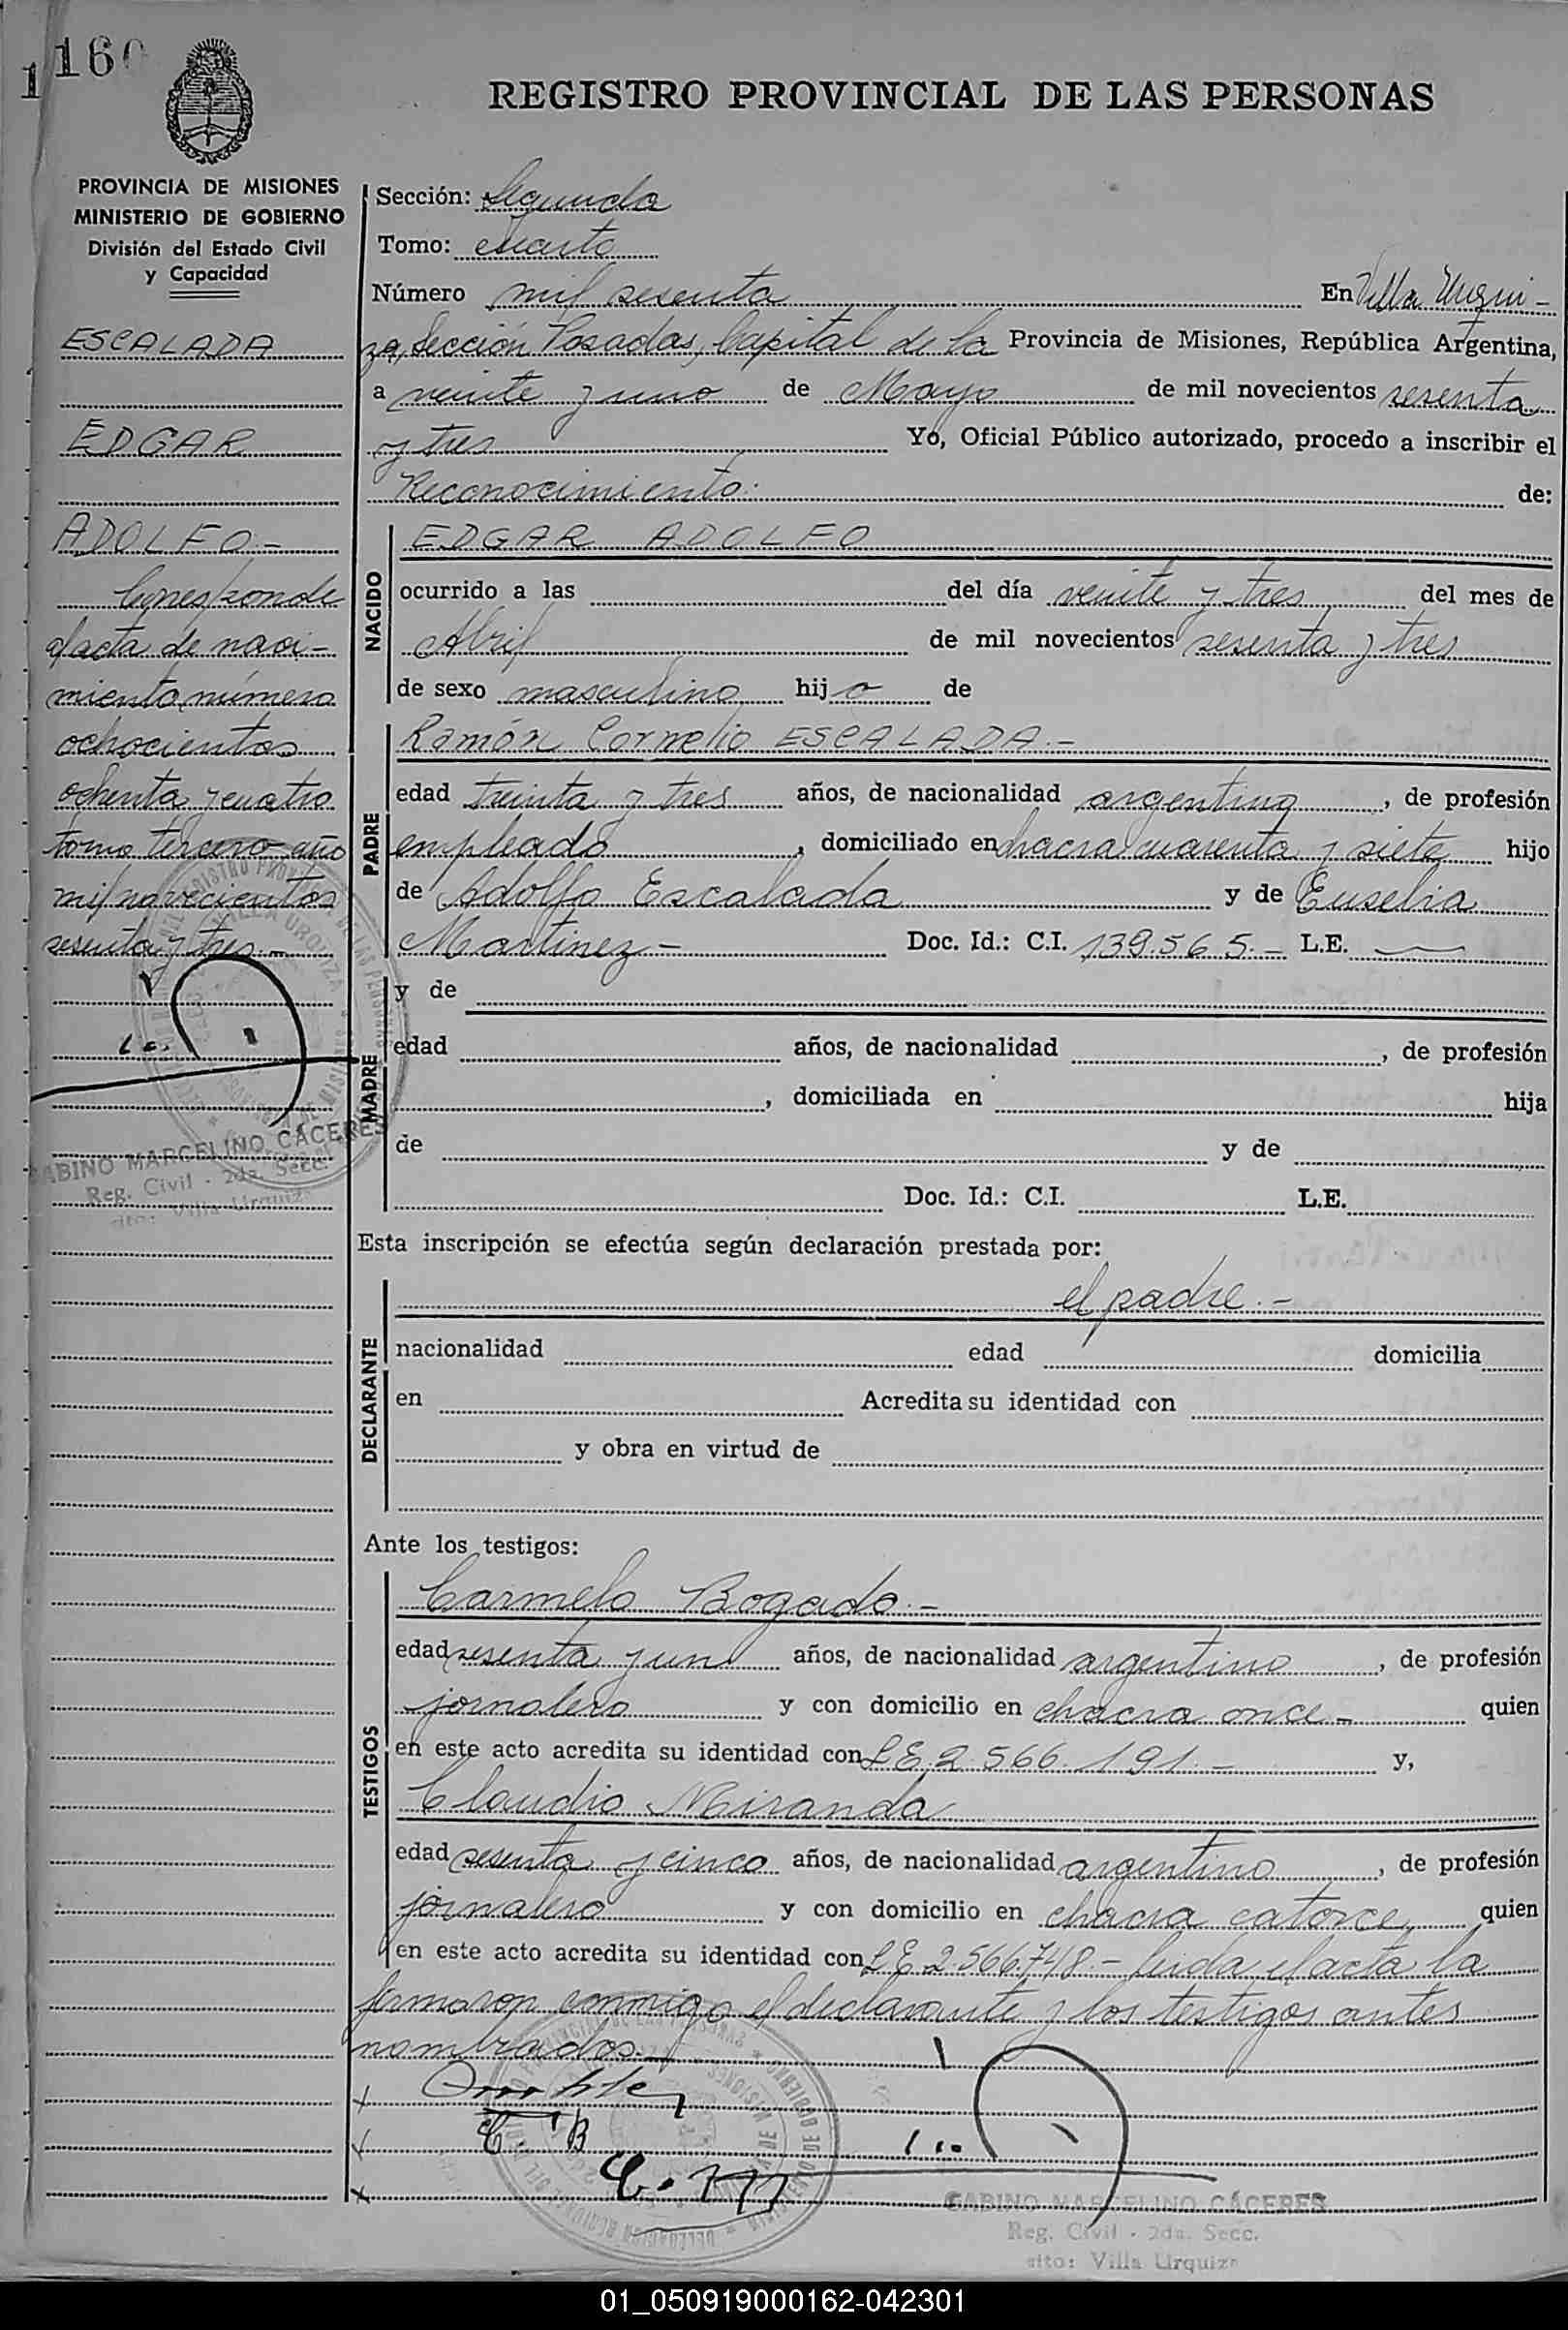 160
1
REGISTRO PROVINCIAL DE LAS PERSONAS
PROVINCIA DE MISIONES
MINISTERIO DE GOBIERNO
División del Estado Civil
y Capacidad
ESCALADA
EDGAR
ADOLFO.-
Corresponde
a/acta de naci-
miento número
ochocientos
ochenta y cuatro
tomo tercero año
mil novecientos
sesenta y tres.-
GABINO MARCELINO CÁCERES
Reg. Civil - 2da. Secc.
sito: Villa Urquiza
Sección: Segunda
Tomo: cuarto
Número mil sesenta En Villa Urqui-
za, Sección Posadas, Capital de la Provincia de Misiones, República Argentina,
a veinte y uno de Mayo de mil novecientos sesenta
y tres Yo, Oficial Público autorizado, procedo a inscribir el
Reconocimiento: de:
NACIDO
EDGAR ADOLFO
ocurrido a las del día veinte y tres del mes de
Abril de mil novecientos sesenta y tres
de sexo masculino hijo de
PADRE
Ramón Cornelio ESCALADA.-
edad treinta y tres años, de nacionalidad argentina, de profesión
empleado, domiciliado en chacra cuarenta y siete hijo
de Adolfo Escalada y de Eusebia
Martinez- Doc. Id.: C.I. 139.565.- L.E. —
MADRE
y de
edad años, de nacionalidad , de profesión
, domiciliada en hija
de y de
Doc. Id.: C.I. L.E.
Esta inscripción se efectúa según declaración prestada por:
el padre.-
DECLARANTE
nacionalidad edad domicilia
en Acredita su identidad con
y obra en virtud de
Ante los testigos:
TESTIGOS
Carmelo Bogado.-
edad sesenta y un años, de nacionalidad argentino, de profesión
jornalero y con domicilio en chacra once- quien
en este acto acredita su identidad con L.E. 2.566.191.- y,
Claudio Miranda
edad sesenta y cinco años, de nacionalidad argentino, de profesión
jornalero y con domicilio en chacra catorce, quien
en este acto acredita su identidad con L.E. 2.566.748.- leida el acta la
firmaron conmigo el declarante y los testigos antes
nombrados.-
C. B
C. M
GABINO MARCELINO CÁCERES
Reg. Civil - 2da. Secc.
sito: Villa Urquiza
01_050919000162-042301